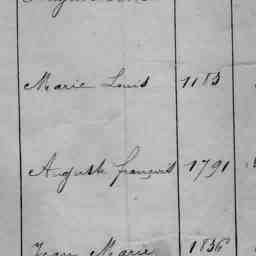 Marie Louis 1183
Auguste françois 1791
Jean Marie 1836